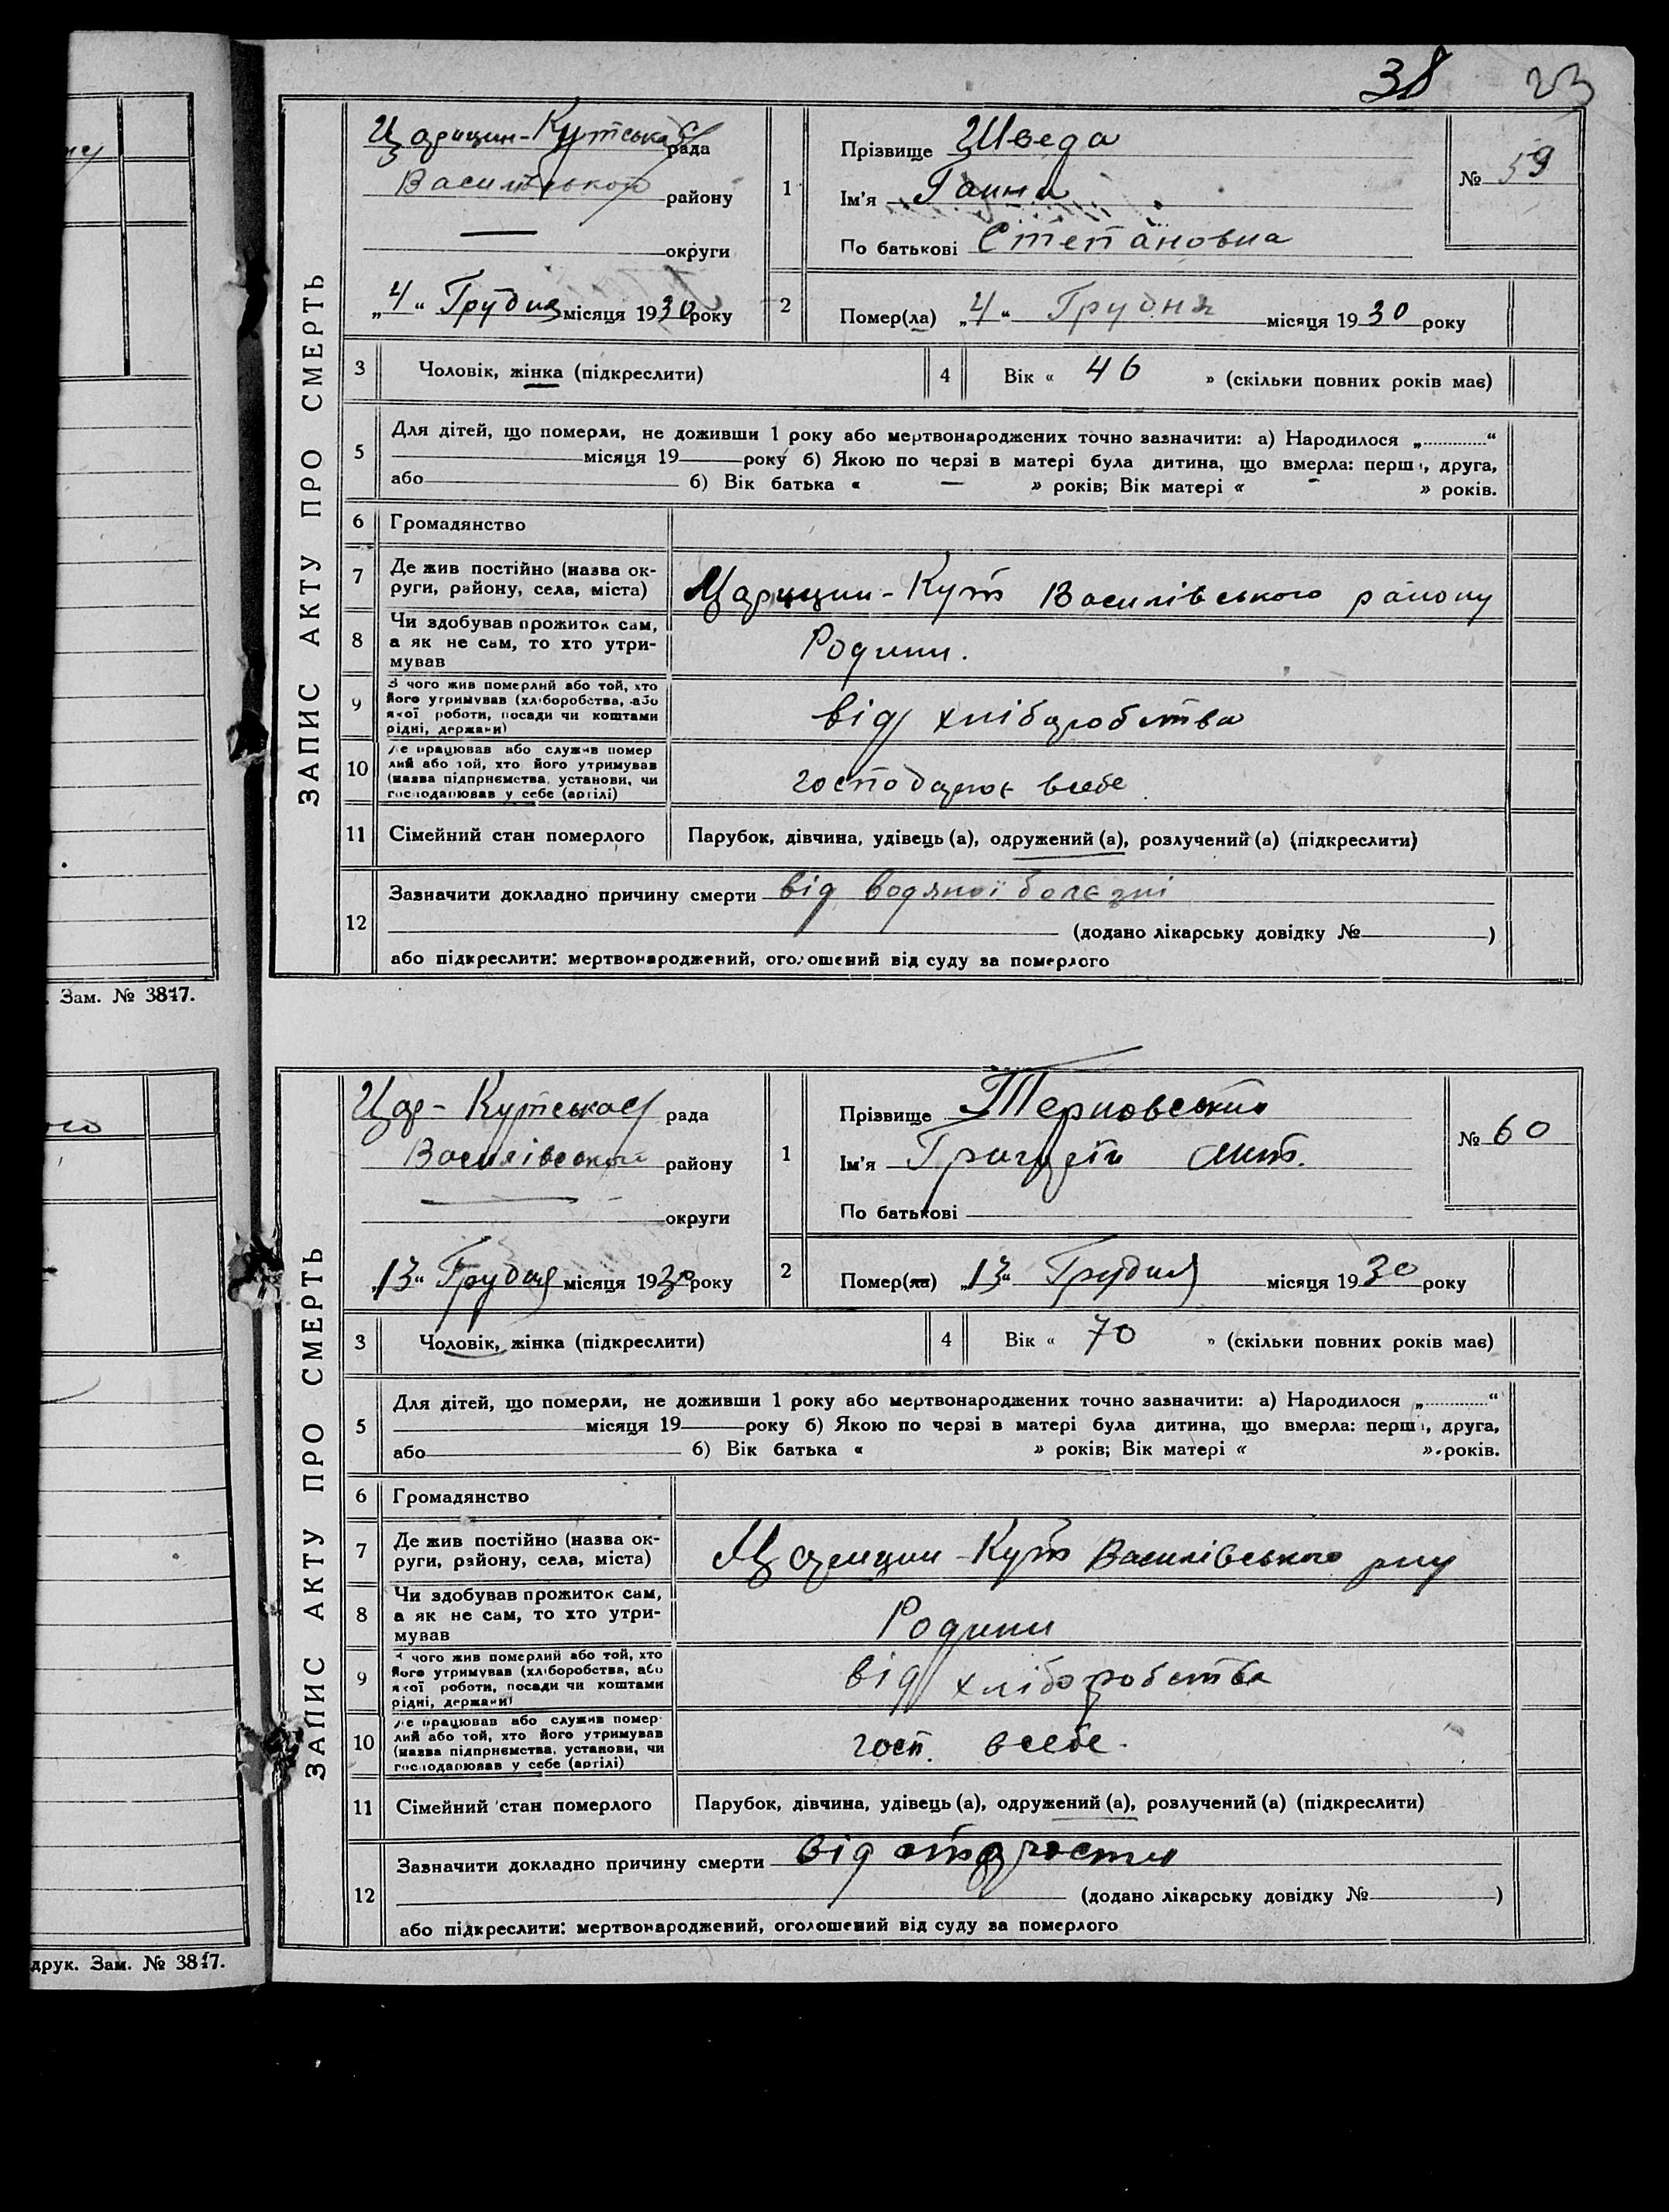 38 23
ЗАПИС АКТУ ПРО СМЕРТЬ
Царицин-Кутська с/рада
Василівського району
округи
„4“ Грудня місяця 1930 року
1
Прізвище Шведа
Ім'я Ганна
По батькові Степановна
№ 59
2
Помер(ла) „4“ Грудня місяця 1930 року
3 Чоловік, жінка (підкреслити)
4 Вік « 46 » (скільки повних років має)
5 Для дітей, що померли, не доживши 1 року або мертвонароджених точно зазначити: а) Народилося „ “
місяця 19 року б) Якою по черзі в матері була дитина, що вмерла: перша, друга,
або б) Вік батька « — » років; Вік матері « - » років.
6 Громадянство
7 Де жив постійно (назва ок-
руги, району, села, міста)
Царицин-Кут Василівського району
8 Чи здобував прожиток сам,
а як не сам, то хто утри-
мував
Родини.
9 З чого жив померлий або той, хто
його утримував (хліборобства, або
якої роботи, посади чи коштами
рідні, держави)
від хліборобства
10 Де працював або служив помер
лий або той, хто його утримував
(назва підприємства, установи, чи
господарював у себе (артілі)
господарює всебе
11 Сімейний стан померлого
Парубок, дівчина, удівець (а), одружений (а), розлучений (а) (підкреслити)
12 Зазначити докладно причину смерти від водяної болєзні
(додано лікарську довідку № )
або підкреслити: мертвонароджений, оголошений від суду за померлого
. Зам. № 3847.
ЗАПИС АКТУ ПРО СМЕРТЬ
Цар-Кутська с/рада
Василівського району
округи
„13“ Грудня місяця 1930 року
1
Прізвище Терновський
Ім'я Григорій Мит.
По батькові
№ 60
2
Помер(ла) „13“ Грудня місяця 1930 року
3 Чоловік, жінка (підкреслити)
4 Вік « 70 » (скільки повних років має)
5 Для дітей, що померли, не доживши 1 року або мертвонароджених точно зазначити: а) Народилося „ “
місяця 19 року б) Якою по черзі в матері була дитина, що вмерла: перша, друга,
або б) Вік батька « » років; Вік матері « » років.
6 Громадянство
7 Де жив постійно (назва ок-
руги, району, села, міста)
Царицин-Кут Василівського р-ну
8 Чи здобував прожиток сам,
а як не сам, то хто утри-
мував
Родини
9 З чого жив померлий або той, хто
його утримував (хліборобства, або
якої роботи, посади чи коштами
рідні, держави)
від хліборобства
10 Де працював або служив помер-
лий або той, хто його утримував
(назва підприємства, установи, чи
господарював у себе (артілі)
госп. всебе.
11 Сімейний стан померлого
Парубок, дівчина, удівець (а), одружений (а), розлучений (а) (підкреслити)
12 Зазначити докладно причину смерти від старости
(додано лікарську довідку № )
або підкреслити: мертвонароджений, оголошений від суду за померлого
друк. Зам. № 3847.